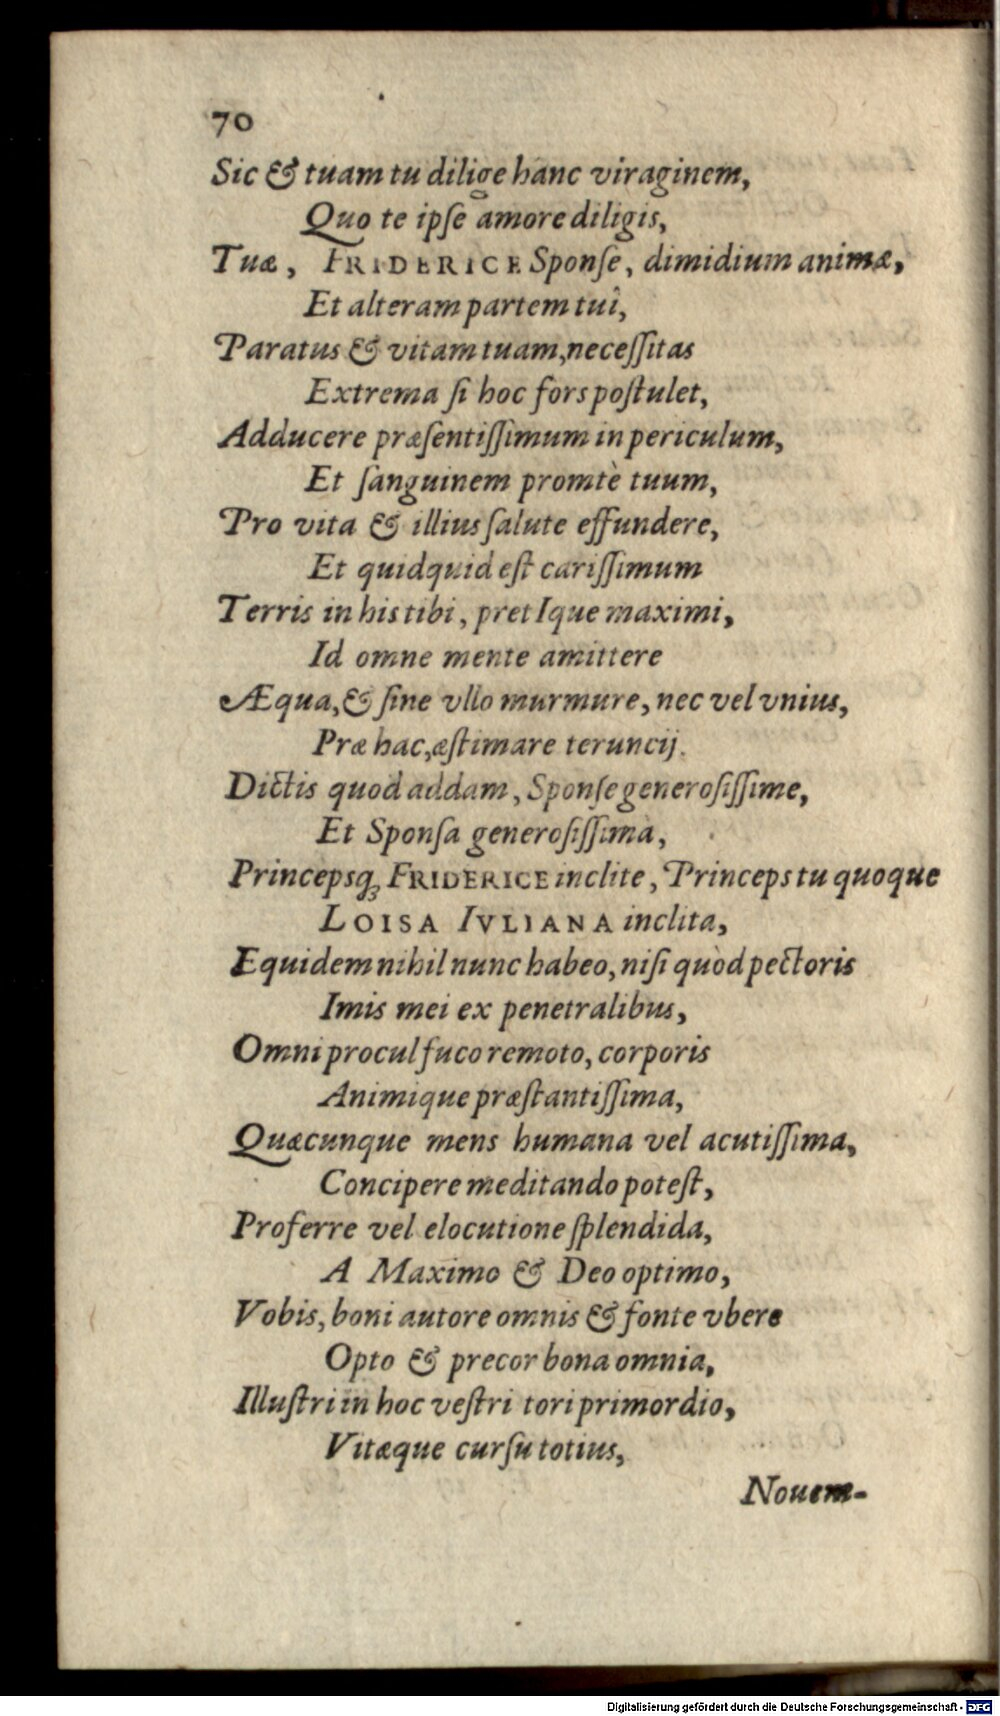 70
Sic & tuam tu dilige hanc viraginem,
Quo te ipſe amore diligis,
Tuæ, FRIDERICE Sponſe, dimidium animæ,
Et alteram partem tuî,
Paratus & vitam tuam, neceſſitas
Extrema ſi hoc fors poſtulet,
Adducere præſentiſſimum in periculum,
Et ſanguinem promtè tuum,
Pro vita & illius ſalute effundere,
Et quidquid eſt cariſſimum
Terris in his tibi, pretIque maximi,
Id omne mente amittere
Æqua, & ſine vllo murmure, nec vel vnius,
Præ hac, æſtimare teruncij.
Dictis quod addam, Sponſe generoſiſſime,
Et Sponſa generoſiſſima,
Princepsq́; FRIDERICE inclite, Princeps tu quoque
LOISA IVLIANA inclita,
Equidem nihil nunc habeo, niſi quòd pectoris
Imis mei ex penetralibus,
Omni procul fuco remoto, corporis
Animique præſtantiſſima,
Quæcunque mens humana vel acutiſſima,
Concipere meditando poteſt,
Proferre vel elocutione ſplendida,
A Maximo & Deo optimo,
Vobis, boni autore omnis & fonte vbere
Opto & precor bona omnia,
Illuſtri in hoc veſtri tori primordio,
Vitæque curſu totius,
Nouem-
Digitalisierung gefördert durch die Deutsche Forschungsgemeinschaft - DFG